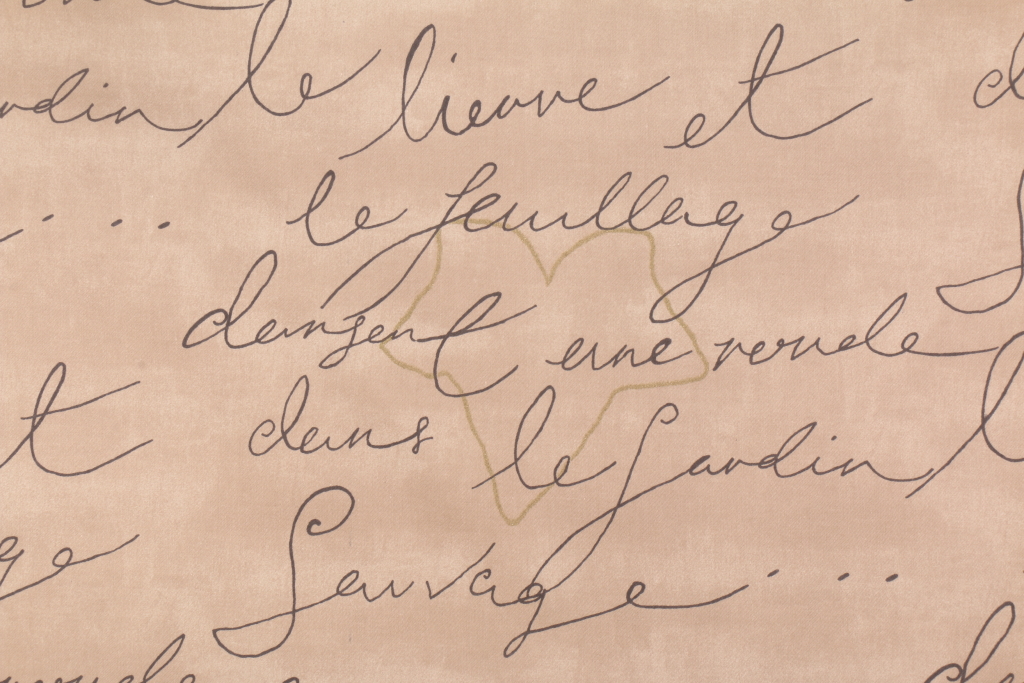 le lievre et
le feuillage
dansent une ronde
dans le jardin
Sauvage ...